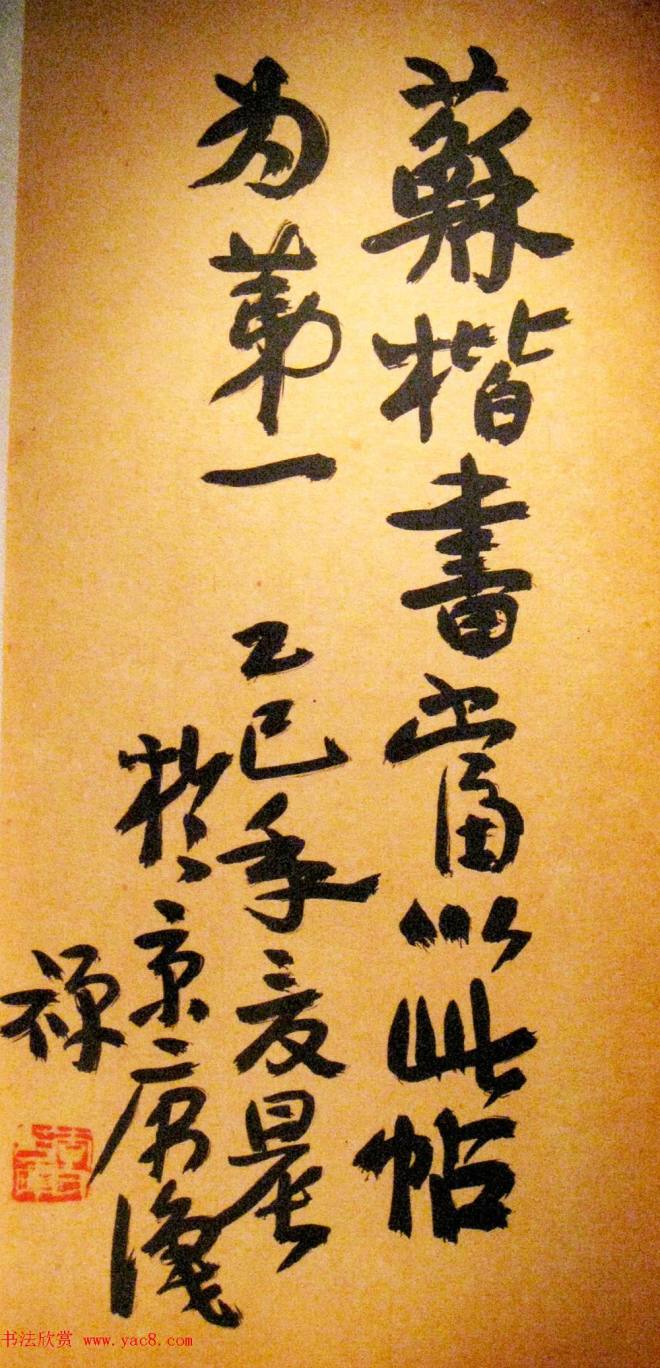 蘇楷書當以此帖
为苐一 乙巳年夏晨
於京
禅
书法欣赏 www.yac8.com